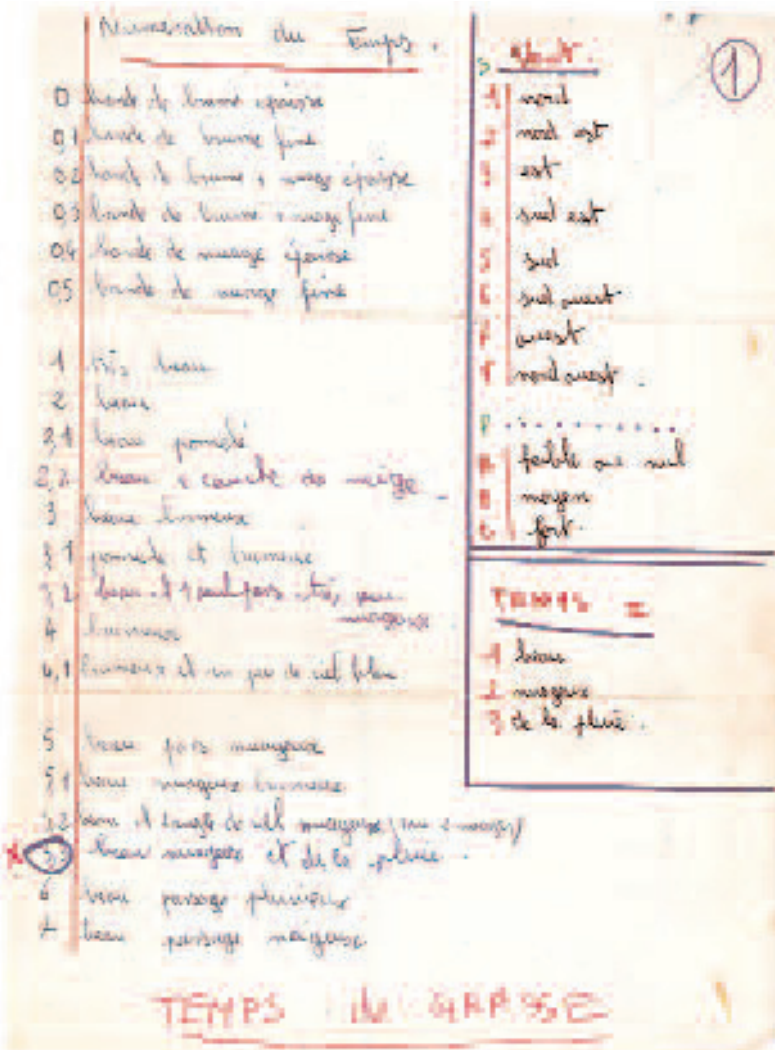 Numération du Temps.
0 bande de brume épaisse
01 bande de brume fine
02 bande de brume + nuage épaisse
03 bande de brume + nuage fine
04 bande de nuage épaisse
05 bande de nuage fine
1 très beau
2 beau
2,1 beau pommelé
2,2 beau + couche de neige
3 beau brumeux
3,1 pommelé et brumeux
3,2 beau et parfois très peu
nuageux
4 brumeux
4,1 brumeux et un peu de ciel bleu
5 beau puis nuageux
5,1 beau nuageux brumeux
5,2 beau et de ciel nuageux
X 5,3 beau nuageux et de la pluie
6 beau passage pluvieux
7 beau passage neigeux
TEMPS de GRASSE
1
S Vent
1 nord
2 nord est
3 est
4 sud est
5 sud
6 sud ouest
7 ouest
8 nord ouest.
F
A faible ou nul
B moyen
C fort
TEMPS
1 beau
2 nuageux
3 de la pluie.